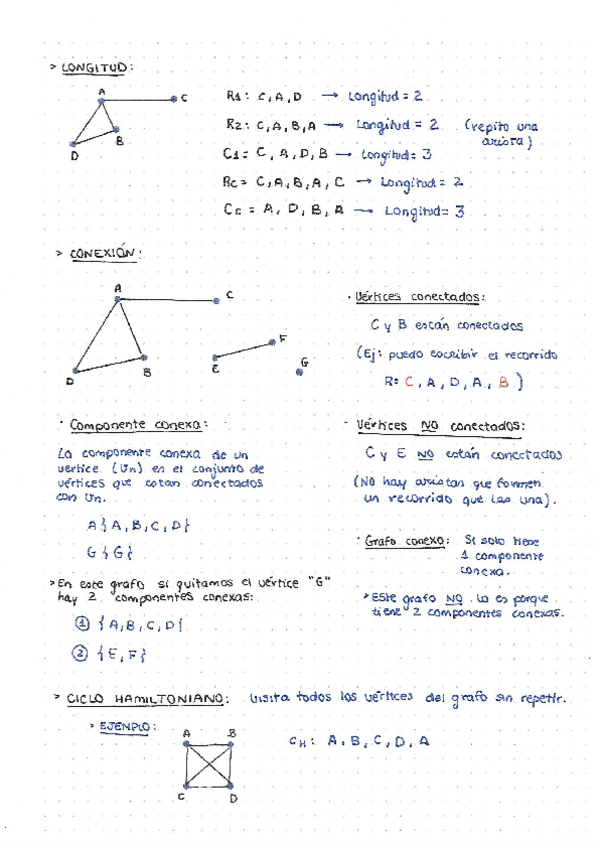 > LONGITUD:
A
C
B
D
R1: C, A, D → Longitud = 2
R2: C, A, B, A → Longitud = 2 (repito una arista)
C1= C, A, D, B → Longitud= 3
Rc= C, A, B, A, C → Longitud= 2
Cc = A, D, B, A → Longitud= 3
> CONEXIÓN:
A
C
F
B
E
G
D
· Vértices conectados:
C y B están conectados
(Ej: puedo escribir el recorrido
R= C, A, D, A, B)
· Componente conexa:
La componente conexa de un
vertice (Un) es el conjunto de
vértices que estan conectados
con Un.
A{A, B, C, D}
G{G}
· Vértices NO conectados:
C y E NO están conectados
(No hay aristas que formen
un recorrido que las una).
· Grafo conexo: Si solo tiene
1 componente
conexa.
> Este grafo NO lo es porque
tiene 2 componentes conexas.
> En este grafo si quitamos el vértice "G"
hay 2 componentes conexas:
① {A, B, C, D}
② {E, F}
> CICLO HAMILTONIANO: Visita todos los vértices del grafo sin repetir.
> EJEMPLO:
A
B
C
D
CH: A, B, C, D, A